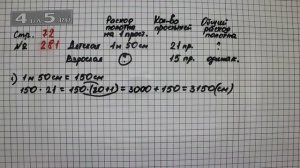 4 на 5.ru
Расход полотна на 1 прост.
Кол-во простыней
Общий расход полотна
Стр. 72
№ 281
Детская 1 м 50 см 21 пр. ?
Взрослая ? 15 пр. одинак.
1) 1 м 50 см = 150 см
150 · 21 = 150 · (20+1) = 3000 + 150 = 3150 (см)